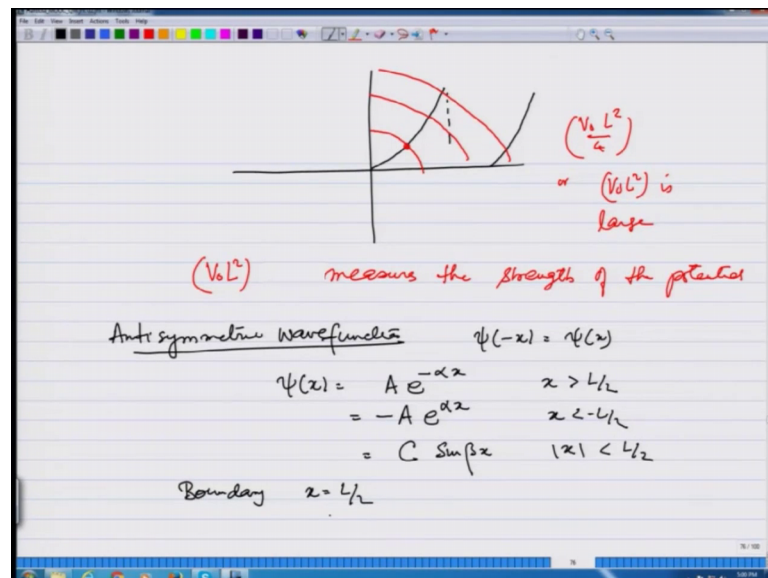 File Edit View Insert Actions Tools Help
(V₀L²/4)
or (V₀L²) is
large
(V₀L²) measures the strength of the potential
Antisymmetric wavefunction ψ(-x) = ψ(x)
ψ(x) = A e^{-αx} x > L/2
= -A e^{αx} x < -L/2
= C Sin βx |x| < L/2
Boundary x = L/2
76 / 100
76
5:00 PM